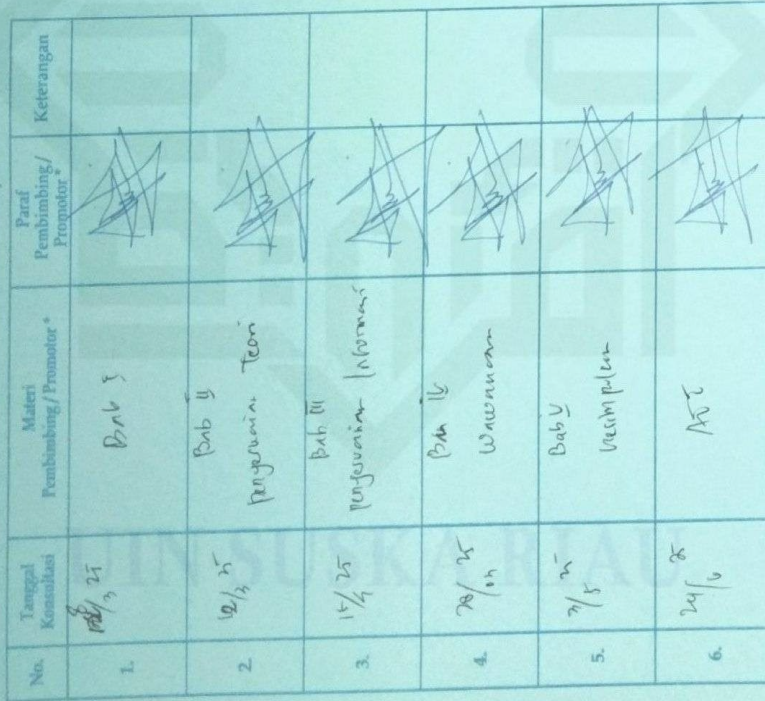 No.
Tanggal
Konsultasi
Materi
Pembimbing / Promotor *
Paraf
Pembimbing /
Promotor*
Keterangan
1.
/3 25
Bab I
2.
12/3 25
Bab II
penyesuaian Teori
3.
15/4 25
Bab III
penyesuaian Informasi
4.
28/04 25
Bab IV
Wawancara
5.
Bab V
Kesimpulan
6.
24/6 25
UIN SUSKA RIAU